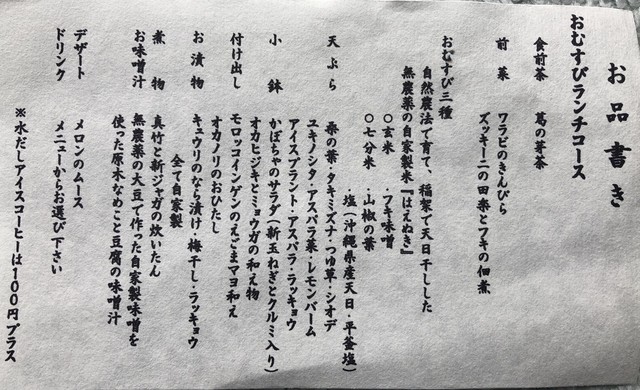 お品書き
おむすびランチコース
食前茶 葛の芽茶
前菜 ワラビのきんぴら
ズッキーニの田楽とフキの佃煮
おむすび三種
自然農法で育て、稲架で天日干しした
無農薬の自家製米『はえぬき』
○玄米 ・フキ味噌
○七分米 ・山椒の葉
・塩(沖縄県産天日・平釜塩)
天ぷら 桑の葉・タキミズナ・つゆ草・シオデ
ユキノシタ・アスパラ菜・レモンバーム
アイスプラント・アスパラ・ラッキョウ
小鉢 かぼちゃのサラダ(新玉ねぎとクルミ入り)
オカヒジキとミョウガの和え物
付け出し モロッコインゲンのえごまマヨ和え
オカノリのおひたし
お漬物 キュウリのなら漬け・梅干し・ラッキョウ
全て自家製
煮物 真竹と新ジャガの炊いたん
お味噌汁 無農薬の大豆で作った自家製味噌を
使った原木なめこと豆腐の味噌汁
デザート メロンのムース
ドリンク メニューからお選び下さい
※水だしアイスコーヒーは100円プラス